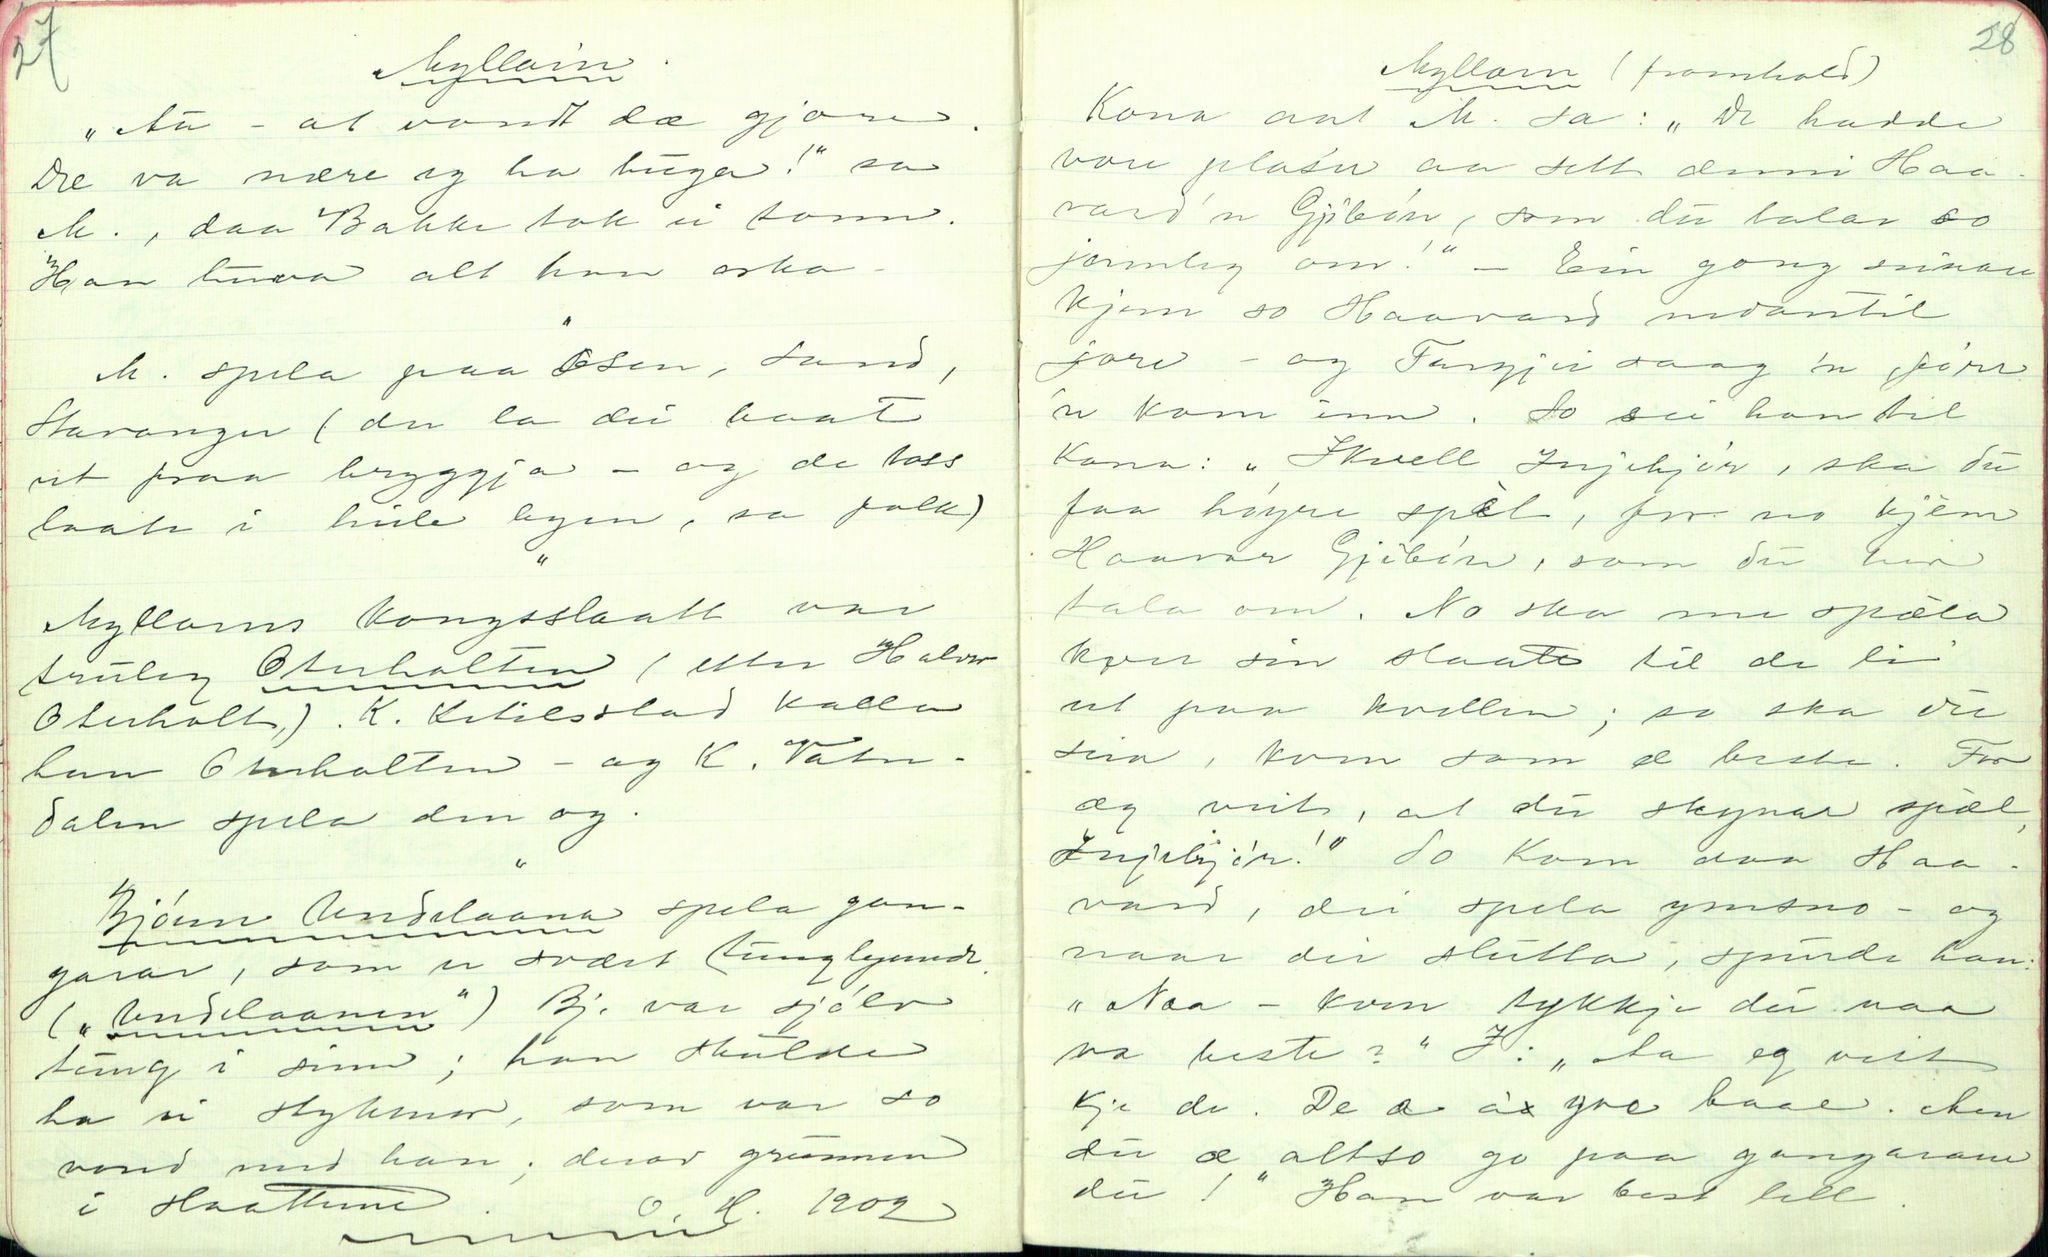 27
Myllarin.
"Au - at vondt dæ gjore.
Dæ va nære eg ha tuga!" sa
M., daa Bakke tok ei tonn.
Han tuva alt han orka -
"
M. spela paa Osen, Sand,
Stavanger (der la dei baat
ut fraa bryggja - og de toss
laate i heile byen, sa folk)
"
Myllarns kongsslaatt var
truleg Oterholten (etter Halvor
Oterholt,). K. Ketilsstad kalla
han Oterholten - og K. Vatn-
dalen spela den og.
"
Bjónn Undelaana spela gan-
garar, som er svært tungbyende.
("Undelaanen") Bj. var sjólv
tung i sinn; han skulde
ha ei stykmor, som var so
vond med han; derav grunnen
i slaattene. O. H. 1902
28
Myllarn (framhald)
Kona aat M. sa: "De hadde
vore plasir aa sett denni Haa-
vard'n Gjibón, som du talar so
jamleg om!" - Ein gong seinare
kjem so Haavard nedantil
jore - og Targjei saag 'n fórr
'n kom inn. So sei han til
kona: "Ikvell Injebjór, ska du
faa høgre spèl, for no kjèm
Haavar Gjibón, som du heve
tala om. No ska me spæla
kvær sin slaatt til de li
ut paa kvellen; so ska du
seia, kvem som æ beste. For
æg veit, at du skynar spæl,
Injebjór!" So kom daa Haa-
vard, dei spela ymsno - og
naar dei slutta, spurde han:
"Naa - kvem tykkje du naa
va beste?" I: "Aa eg veit
kje de. De æ goe baae. Men
du æ altso go paa gangarane
du!" Han var best lell.